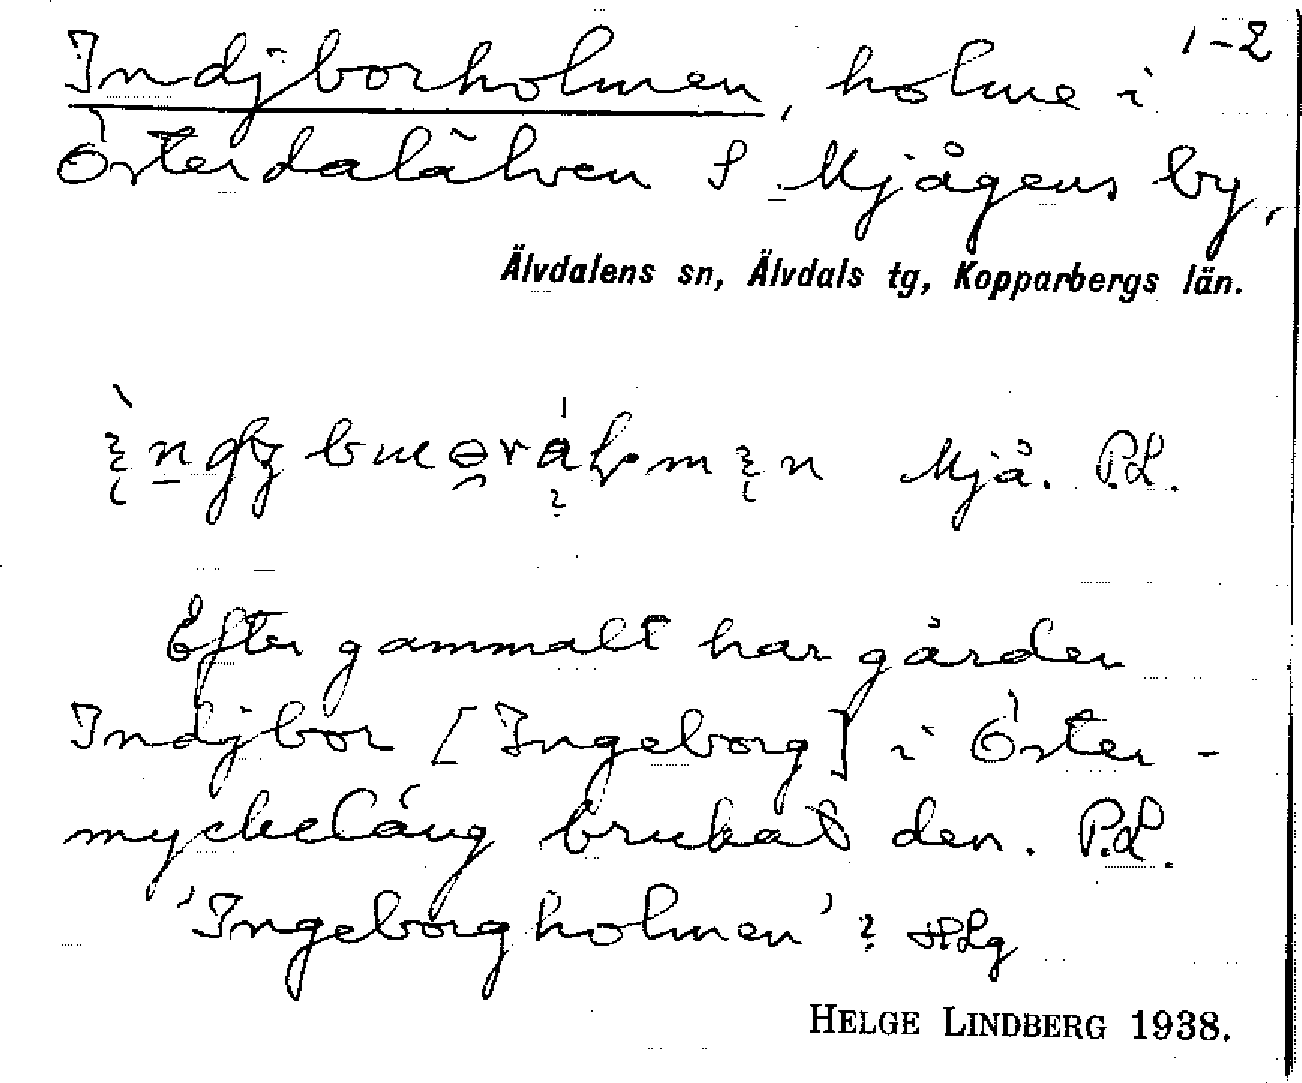 Indjborholmen, holme i 1-2
Österdalälven S Mjågens by,
Älvdalens sn, Älvdals tg, Kopparbergs län.
Mjå. P.L.
Efter gammalt har gården
Indjbor [Ingeborg] i Öster-
myckeläng brukat den. P.L.
'Ingeborgholmen'? HLg
HELGE LINDBERG 1938.